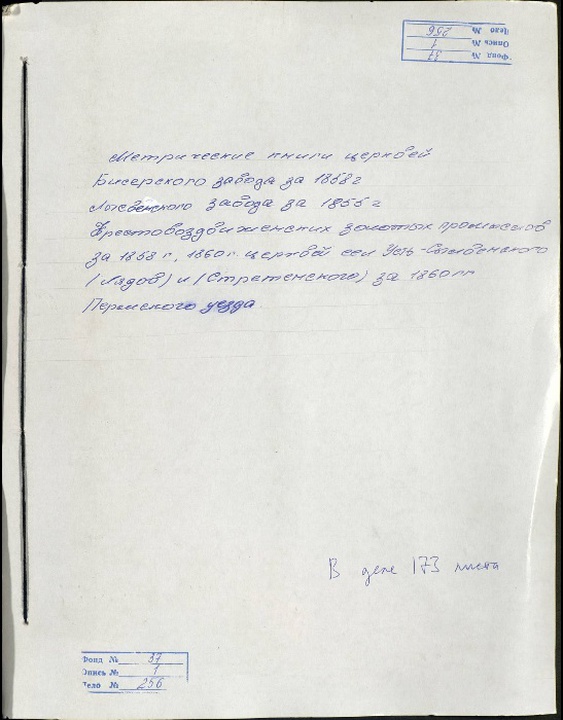 Фонд № 37
Опись № 1
Дело № 256
Метрические книги церквей
Бисерского завода за 1858 г
Лысьвенского завода за 1855 г
Крестовоздвиженских золотых промыслов
за 1858 г, 1860 г. церквей сел Усть-Сылвенского
(Лядов) и (Стретенского) за 1860 гг
Пермского уезда
В деле 173 листа
Фонд № 37
Опись № 1
Дело № 256